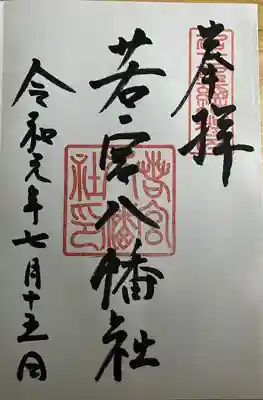 奉拝
若宮八幡社
令和元年七月十五日
若宮八幡社印